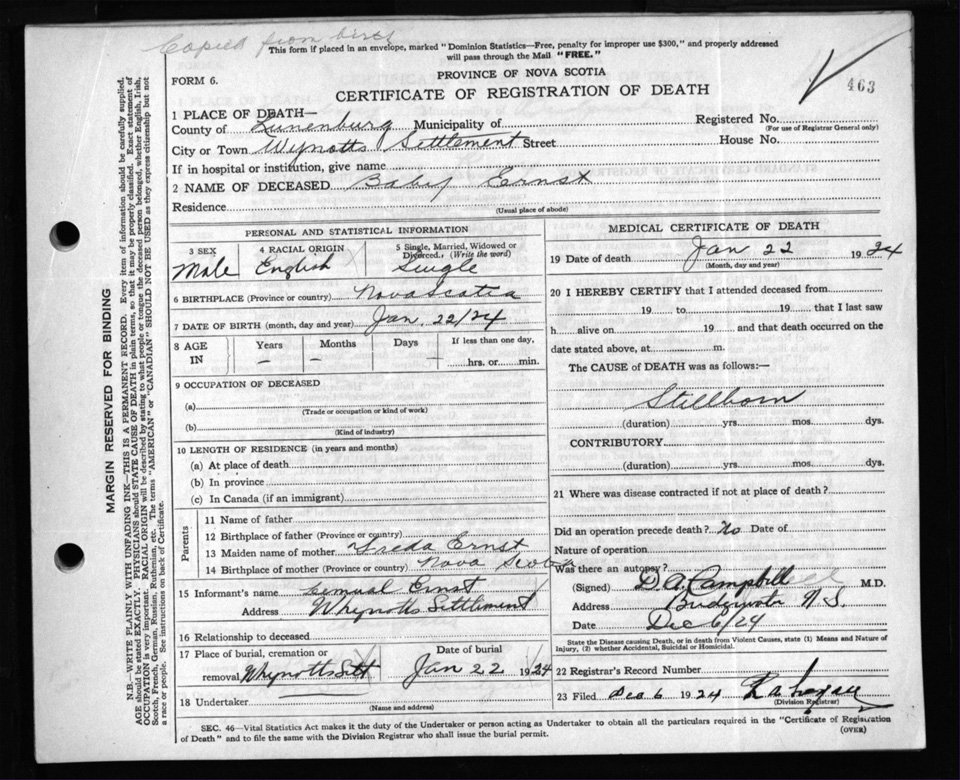 Copied from birth
This form if placed in an envelope, marked "Dominion Statistics—Free, penalty for improper use $300," and properly addressed
will pass through the Mail "FREE."
FORM 6.
PROVINCE OF NOVA SCOTIA
CERTIFICATE OF REGISTRATION OF DEATH
463
1 PLACE OF DEATH—
County of Lunenburg Municipality of Registered No.
(For use of Registrar General only)
City or Town Wynotts Settlement Street House No.
If in hospital or institution, give name
2 NAME OF DECEASED Baby Ernst
Residence
(Usual place of abode)
PERSONAL AND STATISTICAL INFORMATION
3 SEX
Male
4 RACIAL ORIGIN
English
5 Single, Married, Widowed or
Divorced. (Write the word)
Single
6 BIRTHPLACE (Province or country) Nova Scotia
7 DATE OF BIRTH (month, day and year) Jan. 22/24
8 AGE
IN
Years
—
Months
—
Days
—
If less than one day,
hrs. or min.
9 OCCUPATION OF DECEASED
(a)
(Trade or occupation or kind of work)
(b)
(Kind of industry)
10 LENGTH OF RESIDENCE (in years and months)
(a) At place of death
(b) In province
(c) In Canada (if an immigrant)
Parents
11 Name of father
12 Birthplace of father (Province or country)
13 Maiden name of mother Freda Ernst
14 Birthplace of mother (Province or country) Nova Scotia
15 Informant's name Lemual Ernst
Address Whynotts Settlement
16 Relationship to deceased
17 Place of burial, cremation or
removal Whynotts Sett
Date of burial
Jan 22 1924
18 Undertaker
(Name and address)
MEDICAL CERTIFICATE OF DEATH
19 Date of death Jan 22 1924
(Month, day and year)
20 I HEREBY CERTIFY that I attended deceased from
19 to 19 that I last saw
h alive on 19 and that death occurred on the
date stated above, at m.
The CAUSE of DEATH was as follows:—
Stillborn
(duration) yrs. mos. dys.
CONTRIBUTORY
(duration) yrs. mos. dys.
21 Where was disease contracted if not at place of death?
Did an operation precede death? No Date of
Nature of operation
Was there an autopsy?
(Signed) D. A. Campbell M.D.
Address N.S.
Date Dec 6/24
State the Disease causing Death, or in death from Violent Causes, state (1) Means and Nature of
Injury, (2) whether Accidental, Suicidal or Homicidal.
22 Registrar's Record Number
23 Filed Dec 6 1924
(Division Registrar)
SEC. 46—Vital Statistics Act makes it the duty of the Undertaker or person acting as Undertaker to obtain all the particulars required in the "Certificate of Registration
of Death" and to file the same with the Division Registrar who shall issue the burial permit.
(OVER)
MARGIN RESERVED FOR BINDING
N.B.—WRITE PLAINLY WITH UNFADING INK—THIS IS A PERMANENT RECORD. Every item of information should be carefully supplied.
AGE should be stated EXACTLY. PHYSICIANS should STATE CAUSE OF DEATH in plain terms, so that it may be properly classified. Exact statement of
OCCUPATION is very important. RACIAL ORIGIN will be described by stating to what people or tongue the deceased person belonged, whether English, Irish,
Scotch, French, German, Russian, Ruthenian, etc. The terms "AMERICAN" or "CANADIAN" SHOULD NOT BE USED as they express citizenship but not
a race or people. See instructions on back of Certificate.